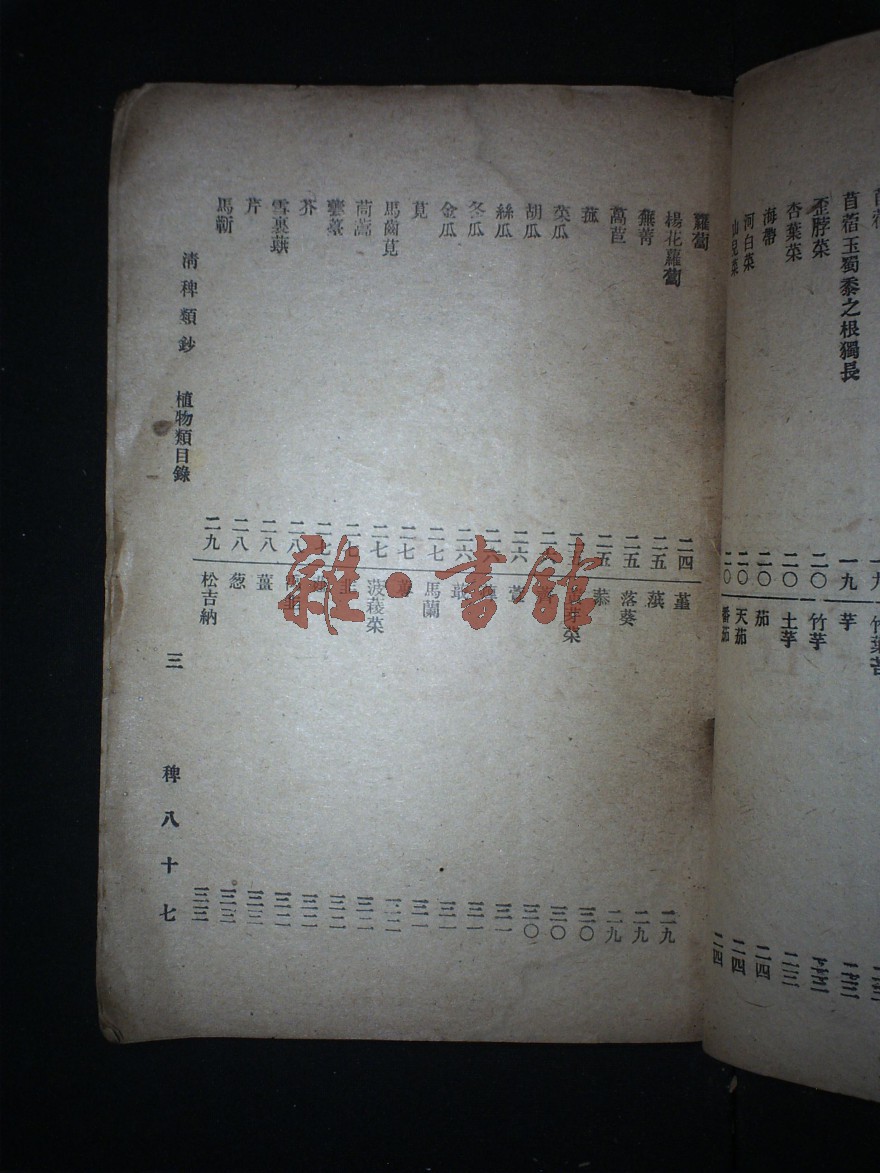 苜蓿玉蜀黍之根獨長 一九
歪脖菜 二〇
杏葉菜 二〇
海帶 二〇
河白菜 二〇
芋
竹芋
土芋 二三
茄 二四
天茄 二四
番茄 二四
蘿蔔 二四
楊花蘿蔔 二五
蕪菁 二五
萵苣 二五
菰
菜瓜
胡瓜 二六
絲瓜
冬瓜 二六
金瓜 二七
莧 二七
馬齒莧 二七
茼蒿 二七
蕓薹 二七
芥 二八
雪裏蕻 二八
芹 二八
馬蘄 二九
菫 二九
蕻 二九
落葵 二九
菾 三〇
芽菜 三〇
三〇
萱 三一
三一
三一
馬蘭 三一
三一
菠薐菜 三二
韭 三二
三二
韭 三二
薑 三三
葱 三三
松吉納 三三
清稗類鈔 植物類目錄 三 稗八十七
雜·書館